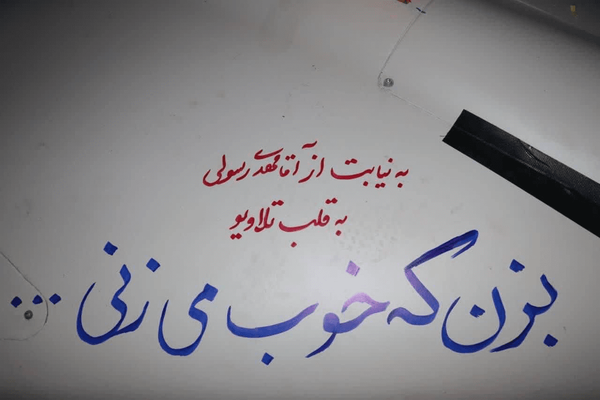 به نیابت از آقا مهدی رسولی
به قلب تلاویو
بزن که خوب می زنی ...